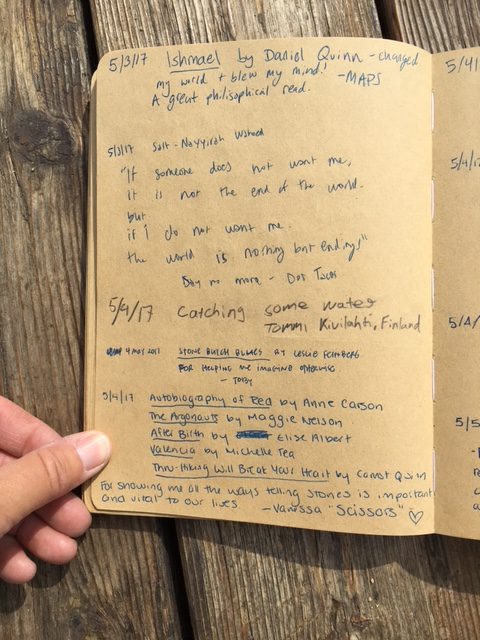 5/3/17 Ishmael by Daniel Quinn - changed
my world + blew my mind! -MAPS
A great philisophical read.
5/3/17 Salt - Nayyirah Waheed
"If someone does not want me,
it is not the end of the world.
but
if i do not want me.
the world is nothing but endings"
Say no more - Dos Tacos
5/4/17 Catching some water
Tommi Kivilahti, Finland
4 MAY 2017 STONE BUTCH BLUES BY LESLIE FEINBERG
FOR HELPING ME IMAGINE OTHERWISE
- TOBY
5/4/17 Autobiography of Red by Anne Carson
The Argonauts by Maggie Nelson
After Birth by Elise Albert
Valencia by Michelle Tea
Thru-Hiking Will Break Your Heart by Carrot Quinn
For showing me all the ways telling stories is important
and vital to our lives -Vanessa "Scissors" ♡
5/4/
5/4/17
5/4/
5/5